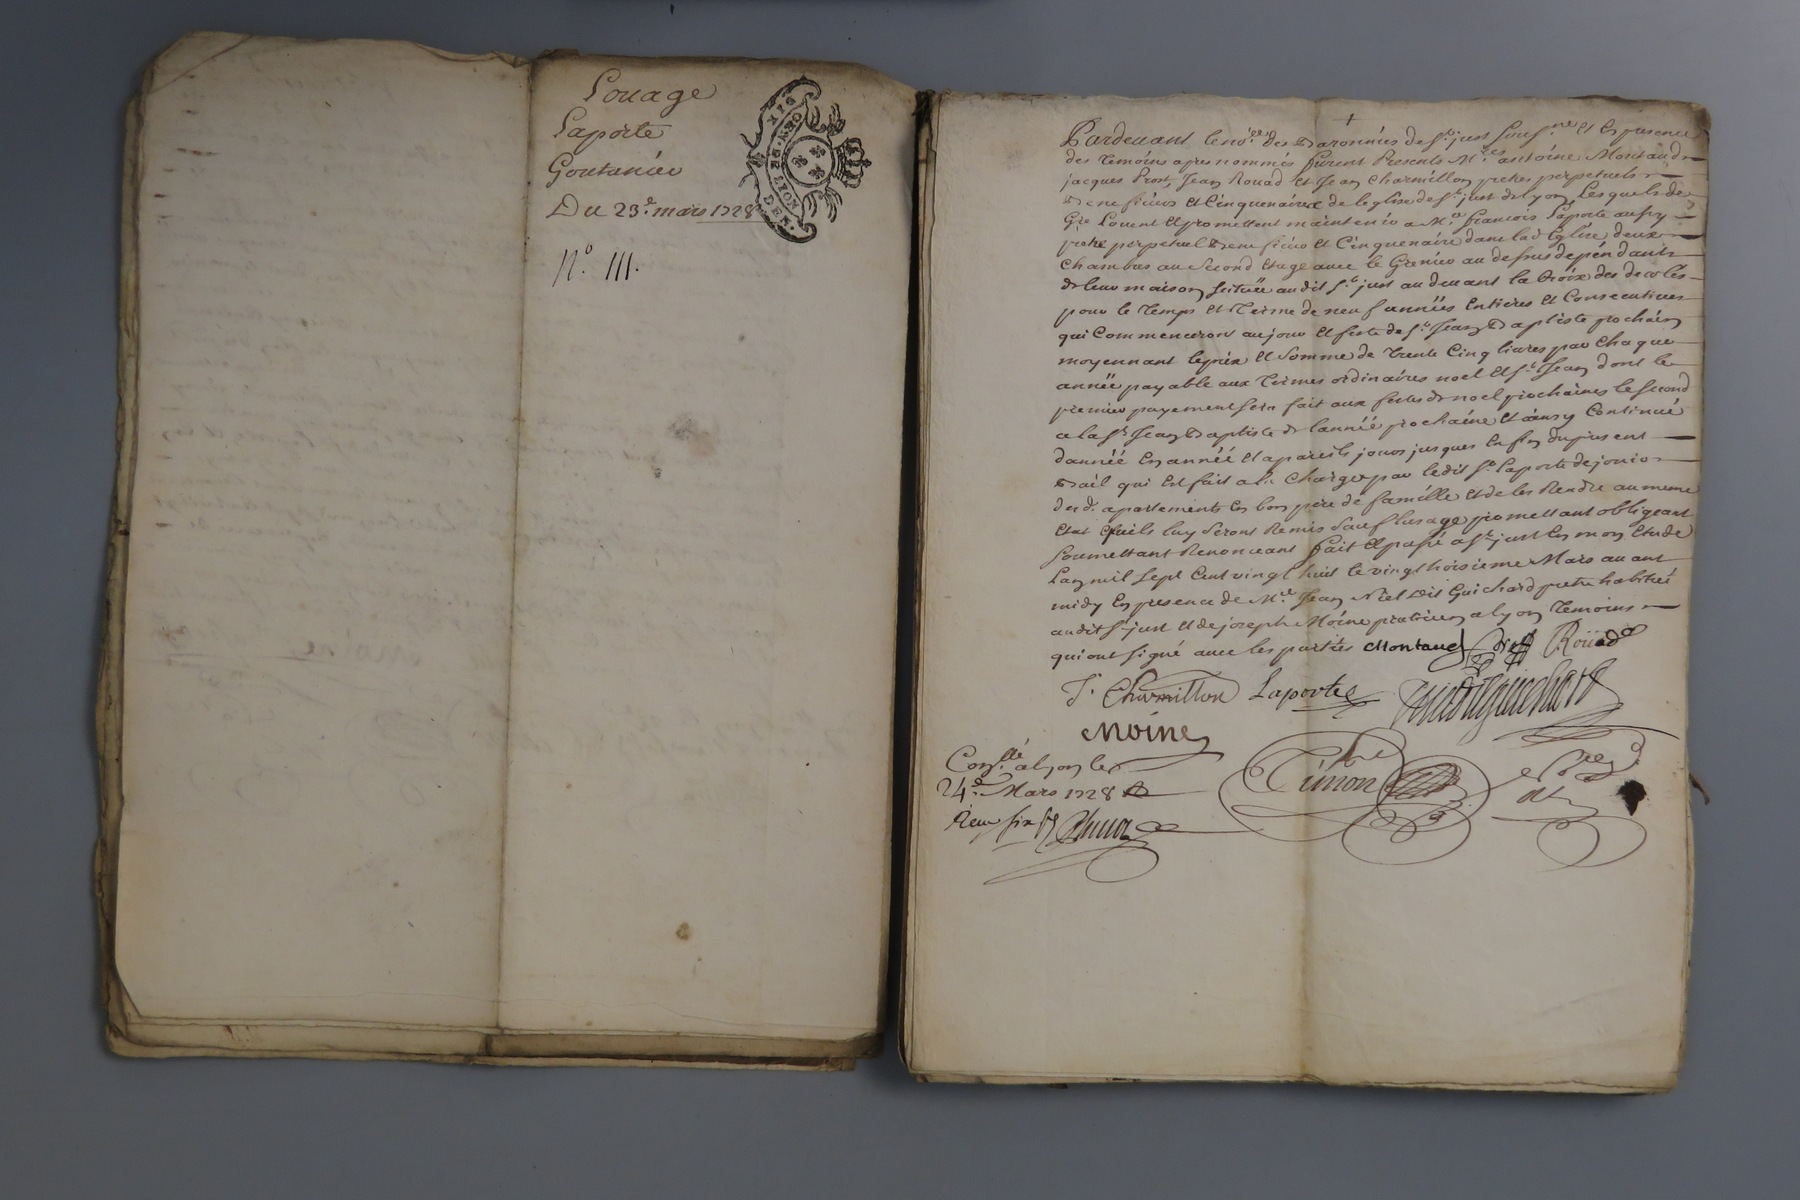 Louage
Laporte
Goutanier
Du 23.e mars 1728
N.o 111.
GEN. DE LYON
SIX DEN.
Pardevant le no.re des Baronnies de S.t just sous.né et En presence
des temoins apres nommés furent Presents M.res antoine Montaud
jacques Prost, Jean Rouad et Jean Charmillon pretres perpetuels
Beneficiers et Cinquenaires de leglise de S.t just de Lyon, Lesquels de
Gré Louent et promettent maintenir a M.re francois Laporte aussy
pretre perpetuel Beneficier et Cinquenaire dans lad Eglise deux
Chambres au Second etage avec le Grenier au dessus dependants
de leur maison scituée audit S.t just au devant la Croix des decolés
pour le Temps et Terme de neuf années Entieres et Consecutives
qui Commenceront au jour et feste de S.t Jean Baptiste prochain
moyennant le prix et Somme de trente Cinq livres par chaque
année payable aux Termes ordinaires noel et S.t Jean dont le
premier payement sera fait aux festes de noel prochaines le second
a la S.t Jean Baptiste de lannée prochaine et ainsy Continué
dannée En année et a pareils jours jusques En fin du present
Bail qui Est fait a la Charge par ledit S.r Laporte de jouir
dud. apartements En bon pere de famille et de les Rendre au meme
Etat quils luy seront Remis sauf lusage promettant obligeant
soumettant Renonceant fait et passé a S.t just En mon Etude
Lan mil sept Cent vingt huit le vingt troisieme Mars avant
midy En presence de M.re Jean Niel dit Guichard pretre habitué
audit S.t just et de joseph Moine praticien a lyon temoins
qui ont signé avec les parties Montaud Prost Roüad
J. Charmillon Laporte Niel dit guichard
Moine
Con.llé a lyon le
24.e Mars 1728
Reçu six s.
Simon